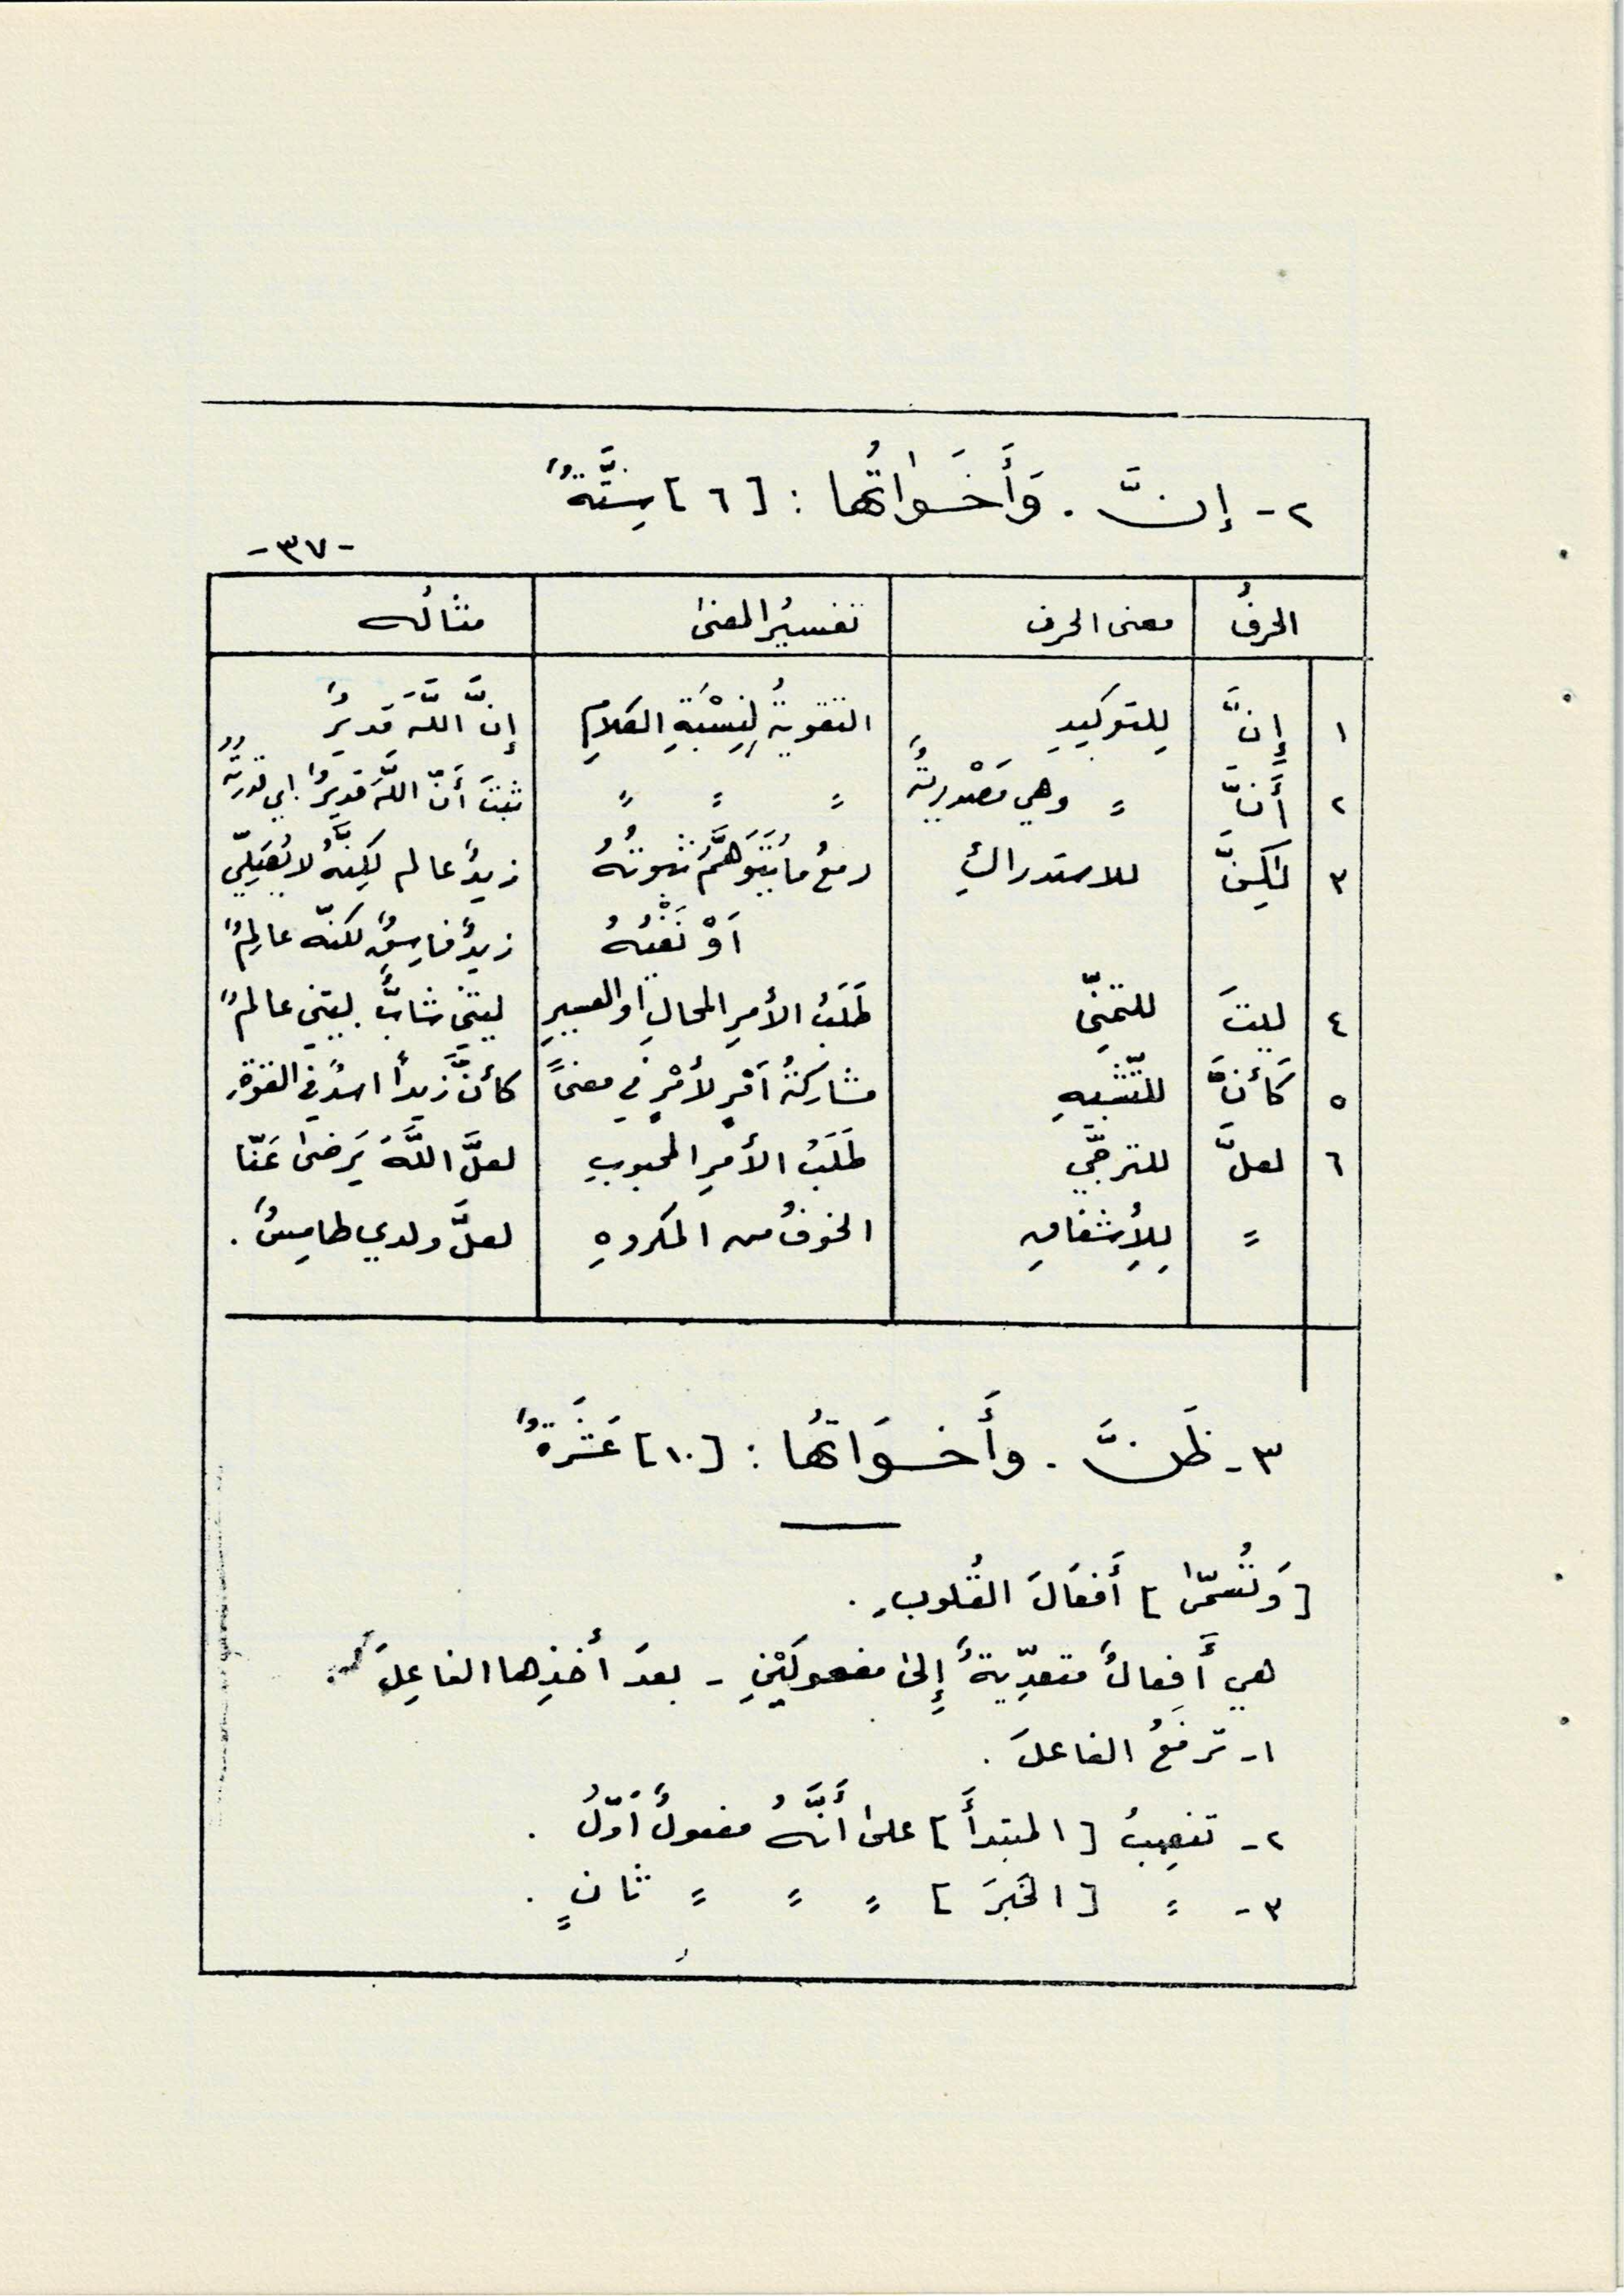 ٢- إنَّ . وَأَخَوَاتُها : [٦] سِتَّةٌ
-٣٧-
الحرفُ معنى الحرف تفسيرُ المعنىٰ مثالُه
١ إِنَّ لِلتوكيدِ التقويةُ لِنِسْبَةِ الكلامِ إنَّ اللَّهَ قديرٌ
٢ أَنَّ = وهي مَصْدريةٌ = = = ثبتَ أَنّ اللَّهَ قديرٌ . اي قدرتُه
٣ لٰكِنَّ للاستدراكِ رفعُ ما يُتَوَهَّمُ ثبوتُهُ زيدٌ عالم لكِنَّهُ لا يُصَلِّي
اَوْ نَفْيُهُ زيدٌ فاسِقٌ لكنّه عالِمٌ
٤ ليتَ للتمنِّي طَلَبُ الأمرِ المحالِ او العسيرِ ليتني شابٌّ . ليتني عالمٌ
٥ كَأنَّ للتّشبيهِ مشاركةُ اَمْرٍ لأمْرٍ في معنىً كأنَّ زيداً اسدٌ في القوّةِ
٦ لعلَّ للترجِّي طَلَبُ الأمرِ المحبوبِ لعلَّ اللَّهَ يَرضىٰ عَنّا
= لِلإشفاقِ الخوفُ من المكروهِ لعلَّ ولدي طامِسٌ .
٣- ظَنَّ . وأَخوَاتُها : [١٠] عَشَرَةٌ
[وَتُسَمّىٰ] أَفعَالَ القُلوبِ .
هي أَفعالٌ متعدِّيةٌ إِلىٰ مفعولَيْنِ - بعدَ أخذِها الفاعِلَ .
١- ترفَعُ الفاعلَ .
٢- تنصِبُ [المبتدأَ] علىٰ أَنَّهُ مفعولٌ اَوّلُ .
٣- = [الخَبرَ] = = = ثانٍ .